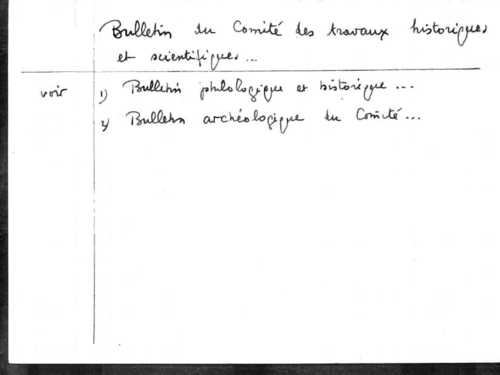 Bulletin du Comité des travaux historiques
et scientifiques...
voir 1) Bulletin philologique et historique...
2) Bulletin archéologique du Comité...